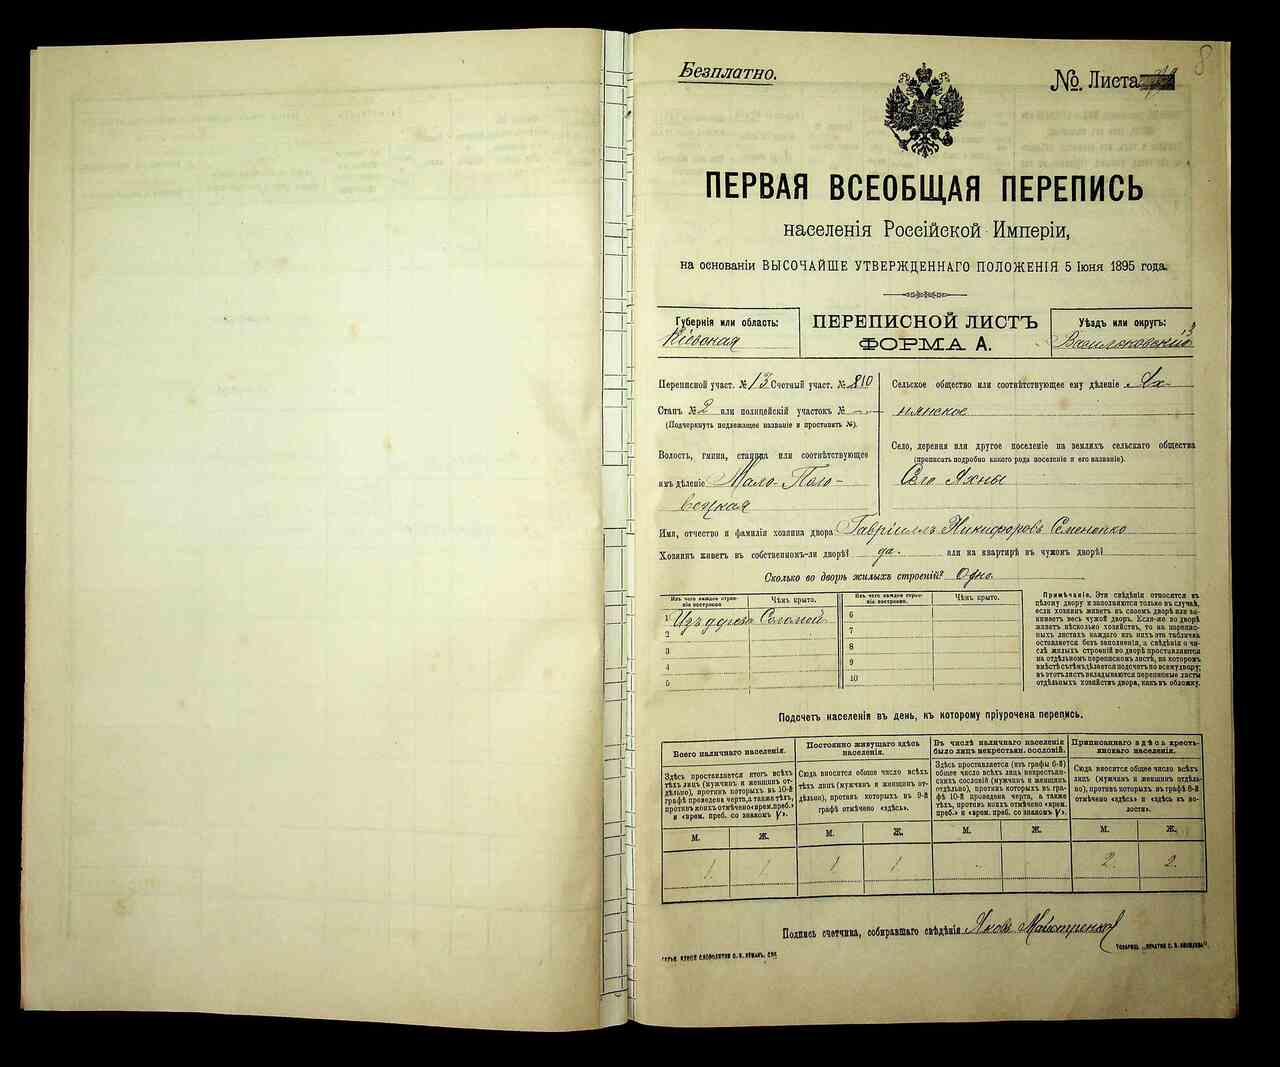 8
Безплатно.
№. Листа
ПЕРВАЯ ВСЕОБЩАЯ ПЕРЕПИСЬ
населенія Россійской Имперіи,
на основаніи ВЫСОЧАЙШЕ УТВЕРЖДЕННАГО ПОЛОЖЕНІЯ 5 Іюня 1895 года.
Губернія или область:
Кіевская
ПЕРЕПИСНОЙ ЛИСТЪ
ФОРМА А.
Уѣздъ или округъ:
Васильковскій
Переписной участ. № 13 Счетный участ. № 810
Станъ № 2 или полицейскій участокъ № —
(Подчеркнуть подлежащее названіе и проставить №).
Волость, гмина, станица или соотвѣтствующее
имъ дѣленіе Мало-Поло-
вецкая
Сельское общество или соотвѣтствующее ему дѣленіе Ях-
нянское
Село, деревня или другое поселеніе на земляхъ сельскаго общества
(прописать подробно какого рода поселеніе и его названіе).
Село Яхны
Имя, отчество и фамилія хозяина двора Гавріилъ Никифоровъ Семененко
Хозяинъ живетъ въ собственномъ-ли дворѣ? да. или на квартирѣ въ чужомъ дворѣ?
Сколько во дворѣ жилыхъ строеній? Одно.
Изъ чего каждое строе-
ніе построено
Чѣмъ крыто.
1 Изъ дерева Соломой
2
3
4
5
Изъ чего каждое строе-
ніе построено.
Чѣмъ крыто.
6
7
8
9
10
Примѣчаніе. Эти свѣдѣнія относятся къ
цѣлому двору и заполняются только въ случаѣ,
если хозяинъ живетъ въ своемъ дворѣ или за-
нимаетъ весь чужой дворъ. Если-же во дворѣ
живетъ нѣсколько хозяйствъ, то на перепис-
ныхъ листахъ каждаго изъ нихъ эта табличка
оставляется безъ заполненія, а свѣдѣнія о чи-
слѣ жилыхъ строеній во дворѣ проставляются
на отдѣльномъ переписномъ листѣ, на которомъ
вмѣстѣ съ тѣмъ дѣлается подсчетъ по всему двору;
въ этотъ листъ вкладываются переписные листы
отдѣльныхъ хозяйствъ двора, какъ въ обложку.
Подсчетъ населенія въ день, къ которому пріурочена перепись.
Всего наличнаго населенія.
Здѣсь проставляется итогъ всѣхъ
тѣхъ лицъ (мужчинъ и женщинъ от-
дѣльно), противъ которыхъ въ 10-й
графѣ проведена черта, а также тѣхъ,
противъ коихъ отмѣчено «врем. преб.»
и «врем. преб. со знакомъ V».
Постоянно живущаго здѣсь
населенія.
Сюда вносится общее число всѣхъ
тѣхъ лицъ (мужчинъ и женщинъ от-
дѣльно), противъ которыхъ въ 9-й
графѣ отмѣчено «здѣсь».
Въ числѣ наличнаго населенія
было лицъ некрестьян. сословій.
Здѣсь проставляется (изъ графы 6-й)
общее число всѣхъ лицъ некрестьян-
скихъ сословій (мужчинъ и женщинъ
отдѣльно), противъ которыхъ въ гра-
фѣ 10-й проведена черта, а также
тѣхъ, противъ коихъ отмѣчено «врем.
преб.» и «врем. преб. со знакомъ V».
Приписаннаго здѣсь кресть-
янскаго населенія.
Сюда вносится общее число всѣхъ
лицъ (мужчинъ и женщинъ отдѣль-
но), противъ которыхъ въ графѣ 8-й
отмѣчено «здѣсь» и «здѣсь въ во-
лости».
М. Ж. М. Ж. М. Ж. М. Ж.
1 1 1 1 - 2 2
Подпись счетчика, собиравшаго свѣдѣнія Яковъ Майстренко